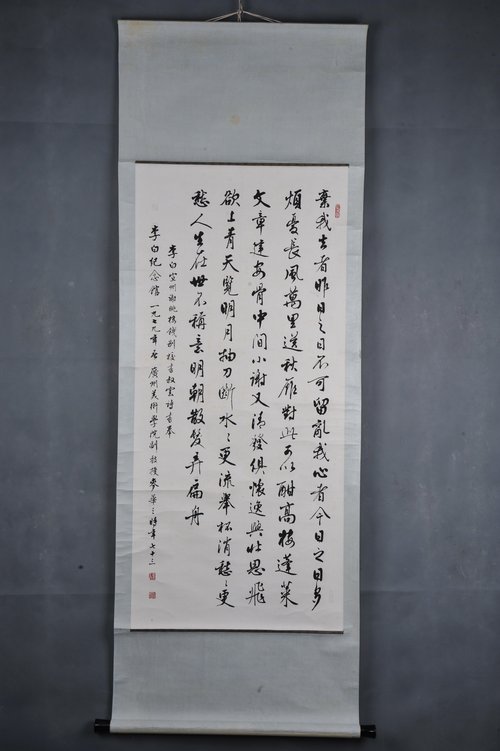 棄我去者昨日之日不可留亂我心者今日之日多
煩憂長風萬里送秋雁對此可以酣高楼蓬萊
文章建安骨中間小謝又清發俱懷逸興壯思飛
欲上青天覽明月抽刀断水々更流舉杯消愁々更
愁人生在世不稱意明朝散髮弄扁舟
李白宣州謝朓楼餞別校書叔雲詩書奉
李白纪念館 一九七九年 廣州美術學院副教授麥華三時年七十三